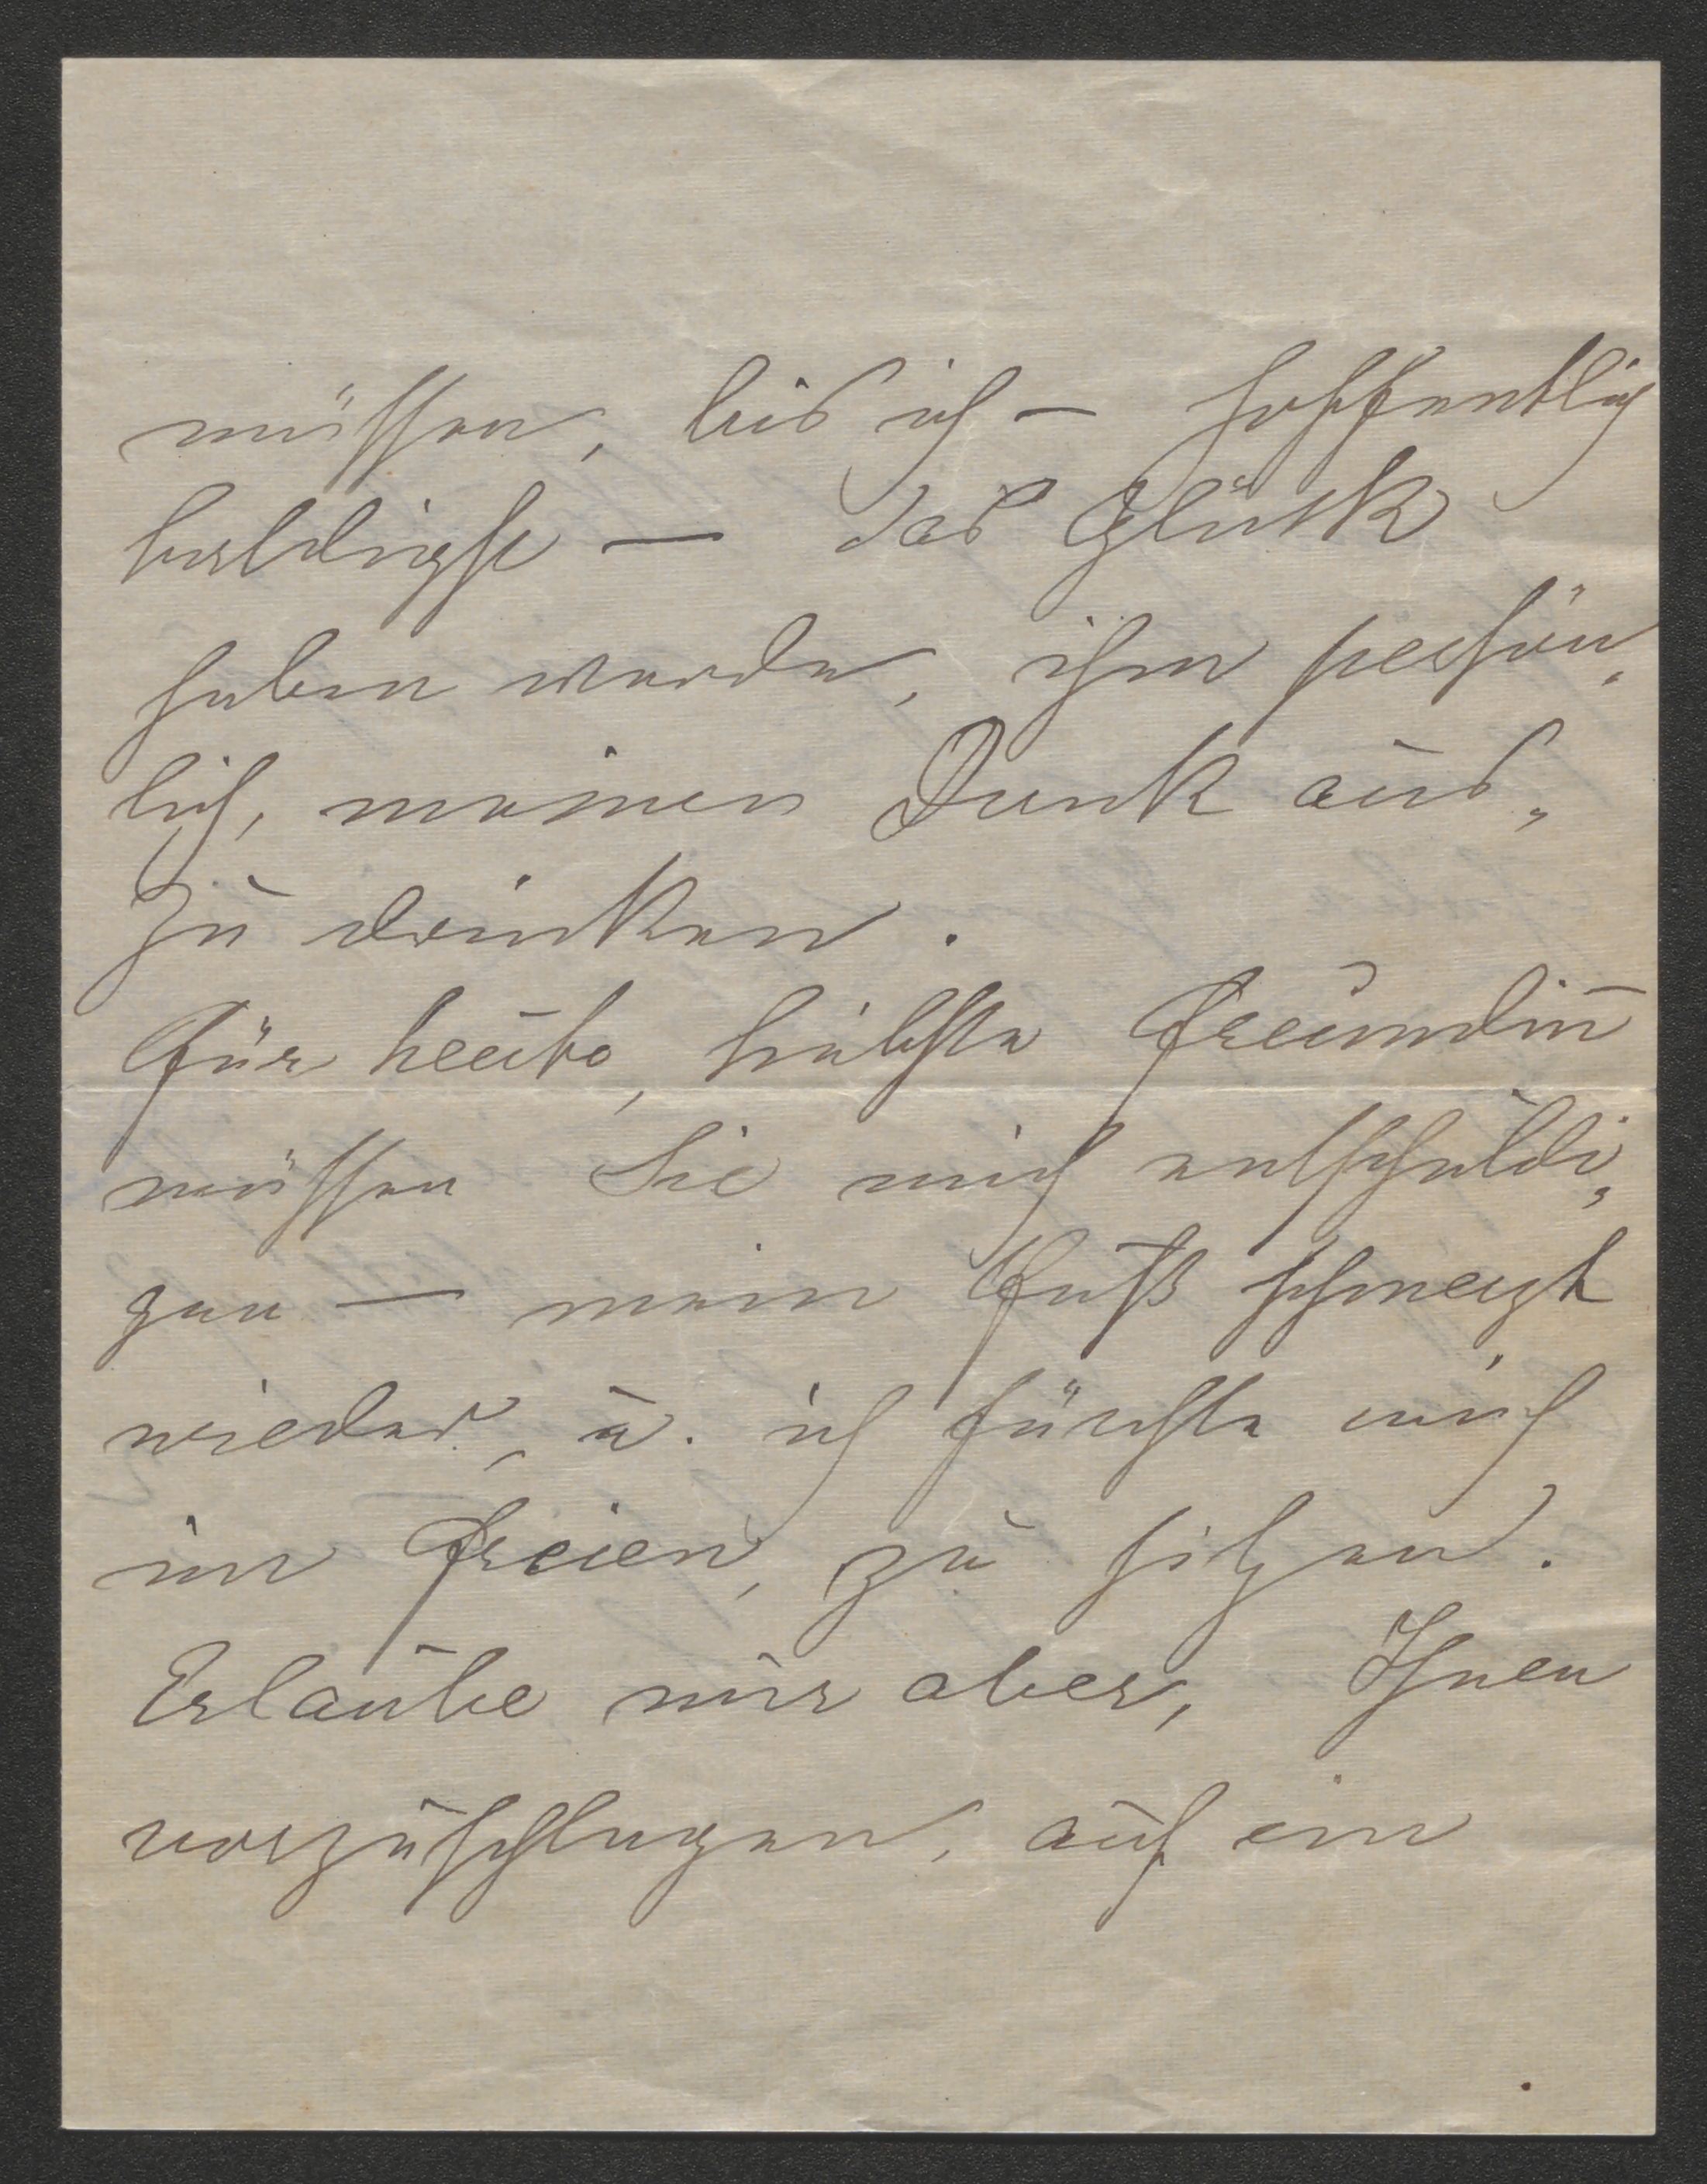 müssen, bis ich – hoffentlich
baldigst – das Glück
haben werde, ihm persön„
lich, meinen Dank aus„
zu drücken.
Für heute, liebste Freundin̄
müssen Sie mich entschuldi„
gen – mein Fuß schmerzt
wieder, u. ich fürchte mich
im Freien, zu sitzen.
Erlaube mir aber, Ihnen
vorzuschlagen, auf ein